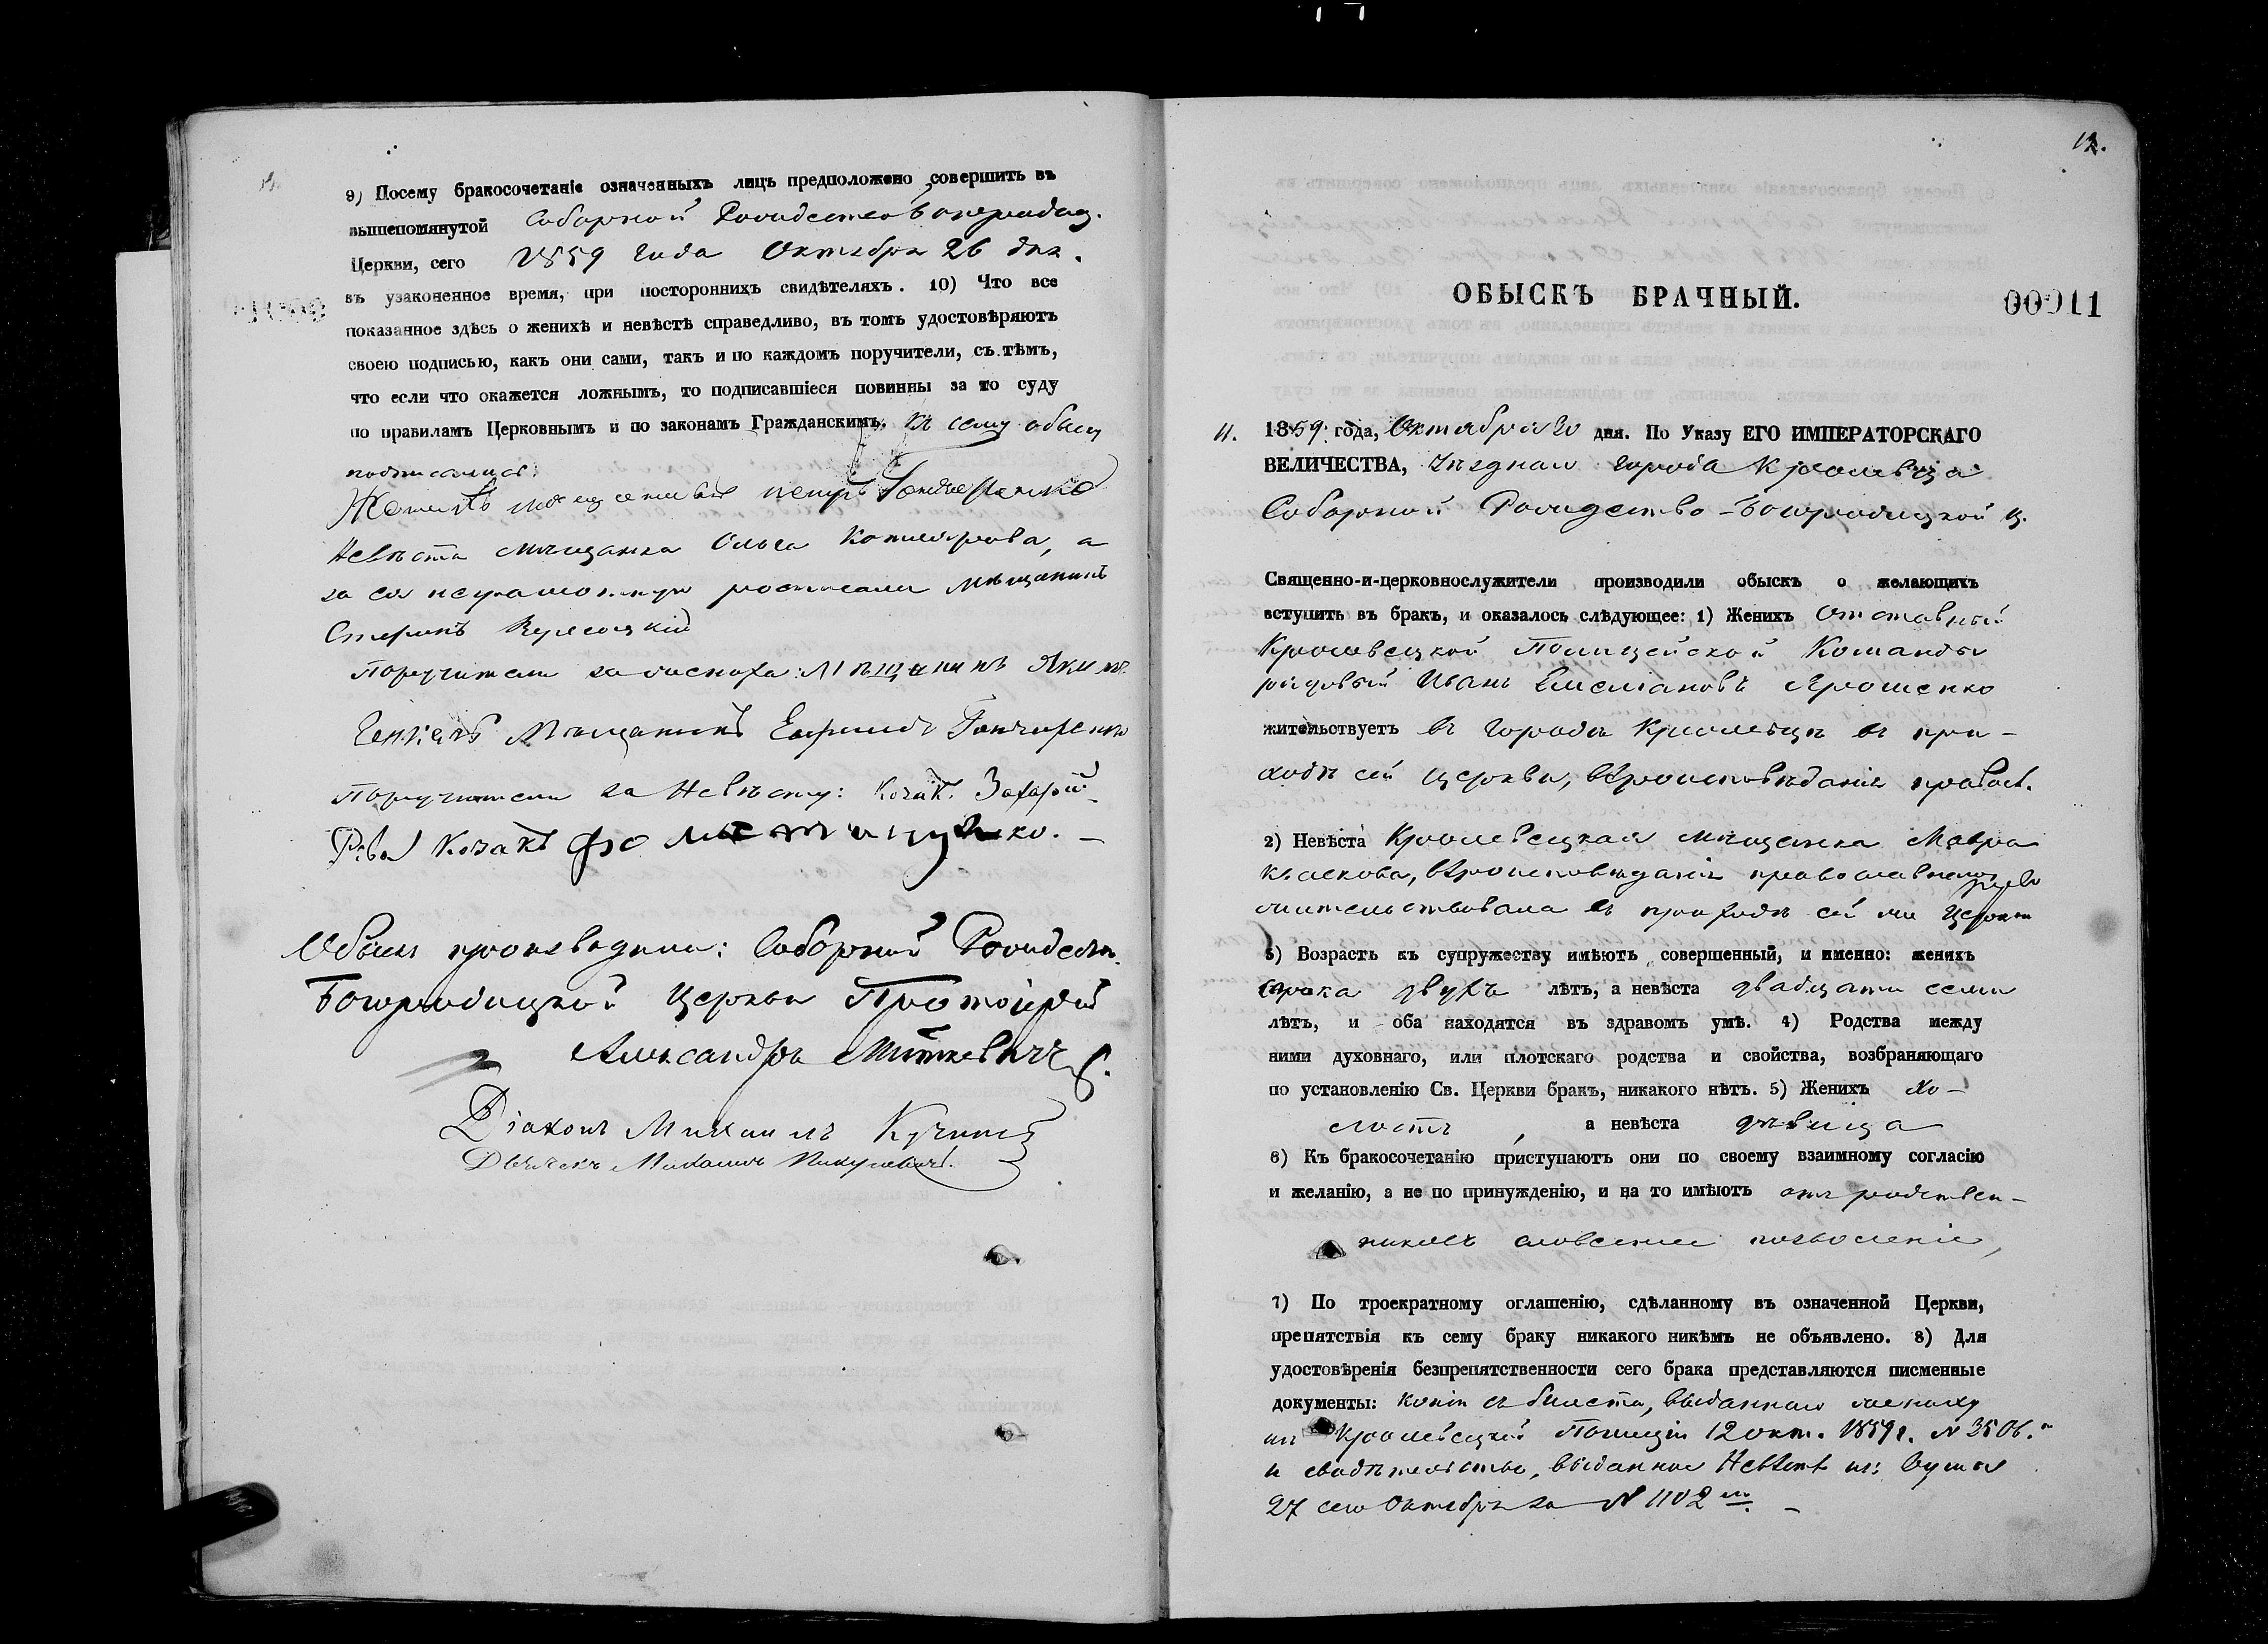 9) Посему бракосочетаніе означенныхъ лицъ предположено совершить въ
вышепомянутой Соборной Рождество Богородиц.
Церкви, сего 1859 года Октября 26 дня.
въ узаконенное время, при постороннихъ свидѣтеляхъ. 10) Что все
показанное здѣсь о женихѣ и невѣстѣ справедливо, въ томъ удостовѣряютъ
своею подписью, какъ они сами, такъ и по каждомъ поручители, съ тѣмъ,
что если что окажется ложнымъ, то подписавшіеся повинны за то суду
по правиламъ Церковнымъ и по законамъ Гражданскимъ. Къ сему обыску
подписались:
Женихъ Петръ Гончаренко
Невѣста мѣщанка Ольга Котлярова, а
за ея неграмотную росписался мѣщанинъ
Стефанъ
Поручители за жениха: Мѣщанинъ Якимъ
Мѣщанинъ Ефимъ Гончаренко
Поручители за Невѣсту: Козакъ Захарій
Козакъ
Обыскъ производили: Соборной Рождеств.
Богородицкой Церкви Протоіерей
Александръ Миткевичъ
Діаконъ Михаилъ Кучинск
Дьячекъ Михаилъ
12.
ОБЫСКЪ БРАЧНЫЙ.
00011
11. 1859 года, Октября 30 дня. По Указу ЕГО ИМПЕРАТОРСКАГО
ВЕЛИЧЕСТВА, Уѣзднаго города Кролевца
Соборной Рождество-Богородицкой ц.
Священно-и-церковнослужители производили обыскъ о желающихъ
вступить въ бракъ, и оказалось слѣдующее: 1) Женихъ Отставный
Кролевецкой Полицейской Команды
рядовый Иванъ Емельяновъ Ярошенко
жительствуетъ въ городѣ Кролевцѣ въ при-
ходѣ сей церкви, вѣроисповѣданія правосл.
2) Невѣста Кролевецкая мѣщанка Мавра
вѣроисповѣданія православнаго
жительствовала въ приходѣ сей же Церкви
3) Возрастъ къ супружеству имѣютъ совершенный, и именно: женихъ
сорока двухъ лѣтъ, а невѣста двадцати семи
лѣтъ, и оба находятся въ здравомъ умѣ. 4) Родства между
ними духовнаго, или плотскаго родства и свойства, возбраняющаго
по установленію Св. Церкви бракъ, никакого нѣтъ. 5) Женихъ хо-
лостъ, а невѣста дѣвица
6) Къ бракосочетанію приступаютъ они по своему взаимному согласію
и желанію, а не по принужденію, и на то имѣютъ отъ родствен-
никовъ словесное позволеніе,
7) По троекратному оглашенію, сдѣланному въ означенной Церкви,
препятствія къ сему браку никакого никѣмъ не объявлено. 8) Для
удостовѣренія безпрепятственности сего брака представляются писменные
документы: копія съ билета, выданнаго жениху
изъ Кролевецкой Полиціи 12 окт. 1859 г. № 3506.
и свидѣтельство, выданное Невѣстѣ изъ Думы
27 сего Октября за № 1102